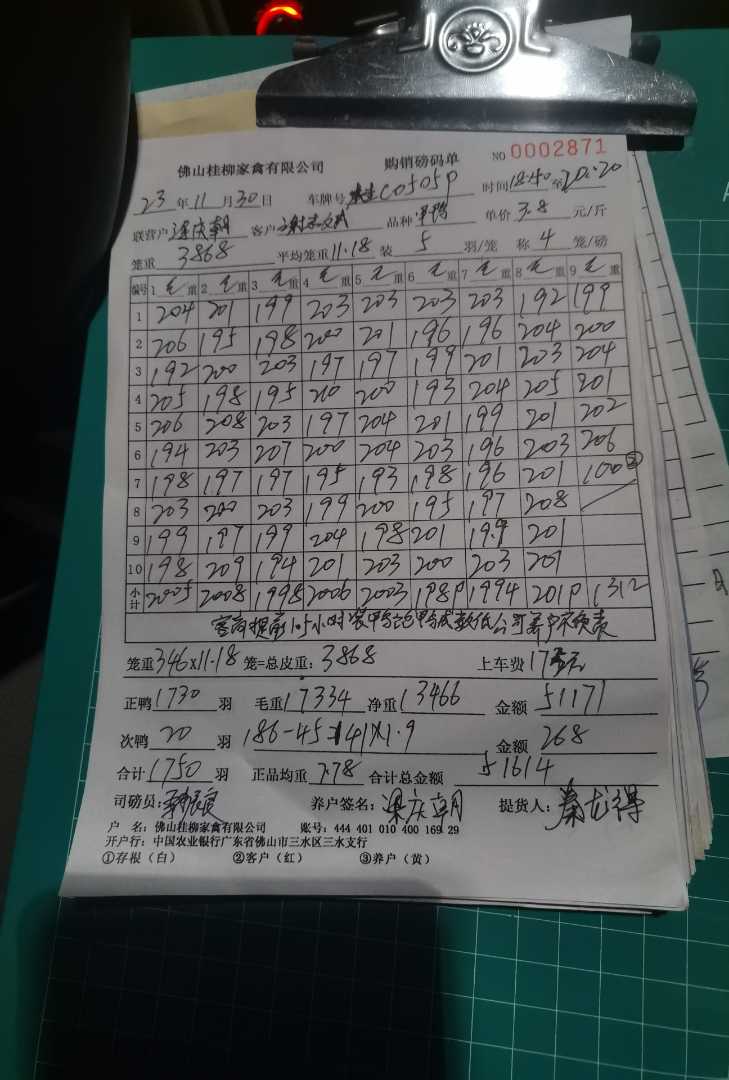 佛山桂柳家禽有限公司 购销磅码单 NO 0002871
23年11月30日 车牌号 C0505P 时间18:40至20:20
联营户 梁庆朝 客户 品种 单价3.8元/斤
笼重 3868 平均笼重11.18 装 5 羽/笼 称 4 笼/磅
编号 1 毛重 2 毛重 3 毛重 4 毛重 5 毛重 6 毛重 7 毛重 8 毛重 9 毛重
1 204 201 199 203 203 203 203 192 199
2 206 195 198 200 201 196 196 204 200
3 192 200 203 197 197 199 201 203 204
4 205 198 195 210 200 193 204 205 201
5 206 208 203 197 204 201 199 201 202
6 194 203 207 200 204 203 196 203 206
7 198 197 197 195 193 198 196 201 100②
8 203 200 203 199 200 195 197 208
9 199 197 199 204 198 201 199 201
10 198 209 194 201 203 200 203 201
小计 2005 2008 1998 2006 2003 1989 1994 2019 1312
客商提前1.5小时装鸭
笼重346×11.18 笼=总皮重：3868 上车费 17
正鸭1730羽 毛重17334 净重13466 金额 51171
次鸭 20 羽 186-45=141×1.9 金额 268
合计1750羽 正品均重 7.78 合计总金额 51614
司磅员: 养户签名：梁庆朝 提货人：秦龙得
户 名：佛山桂柳家禽有限公司 账号：444 401 010 400 169 29
开户行：中国农业银行广东省佛山市三水区三水支行
①存根（白） ②客户（红） ③养户（黄）